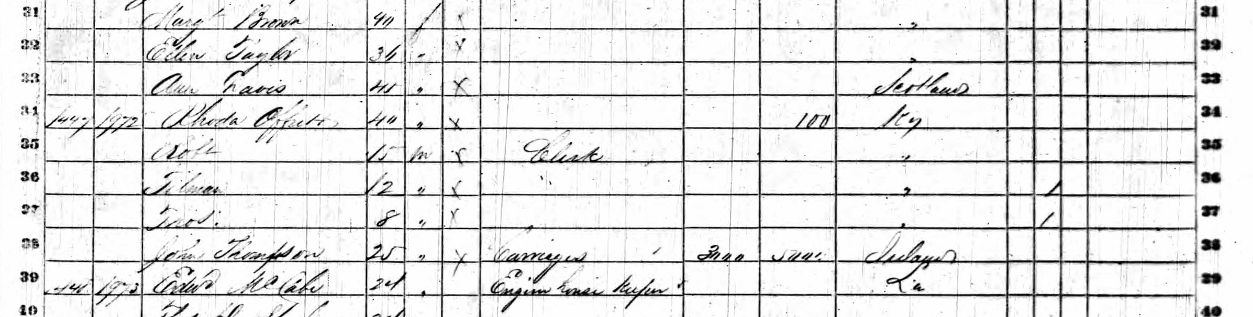 31 Margt Brown 40 f x " 31
32 Ellen Taylor 36 " x " 32
33 Ann Davis 40 " x Scotland 33
34 1447 1972 Rhoda Offutt 40 " x 100 Ky 34
35 Robt 15 m x Clerk " 35
36 Tilman 12 " x " 1 36
37 Thos. 8 " x " 1 37
38 John Thompson 25 " x Carriages 3000 5000 Ireland 38
39 1973 Edwd McCabe 24 " Engine house keeper La 39
40 40